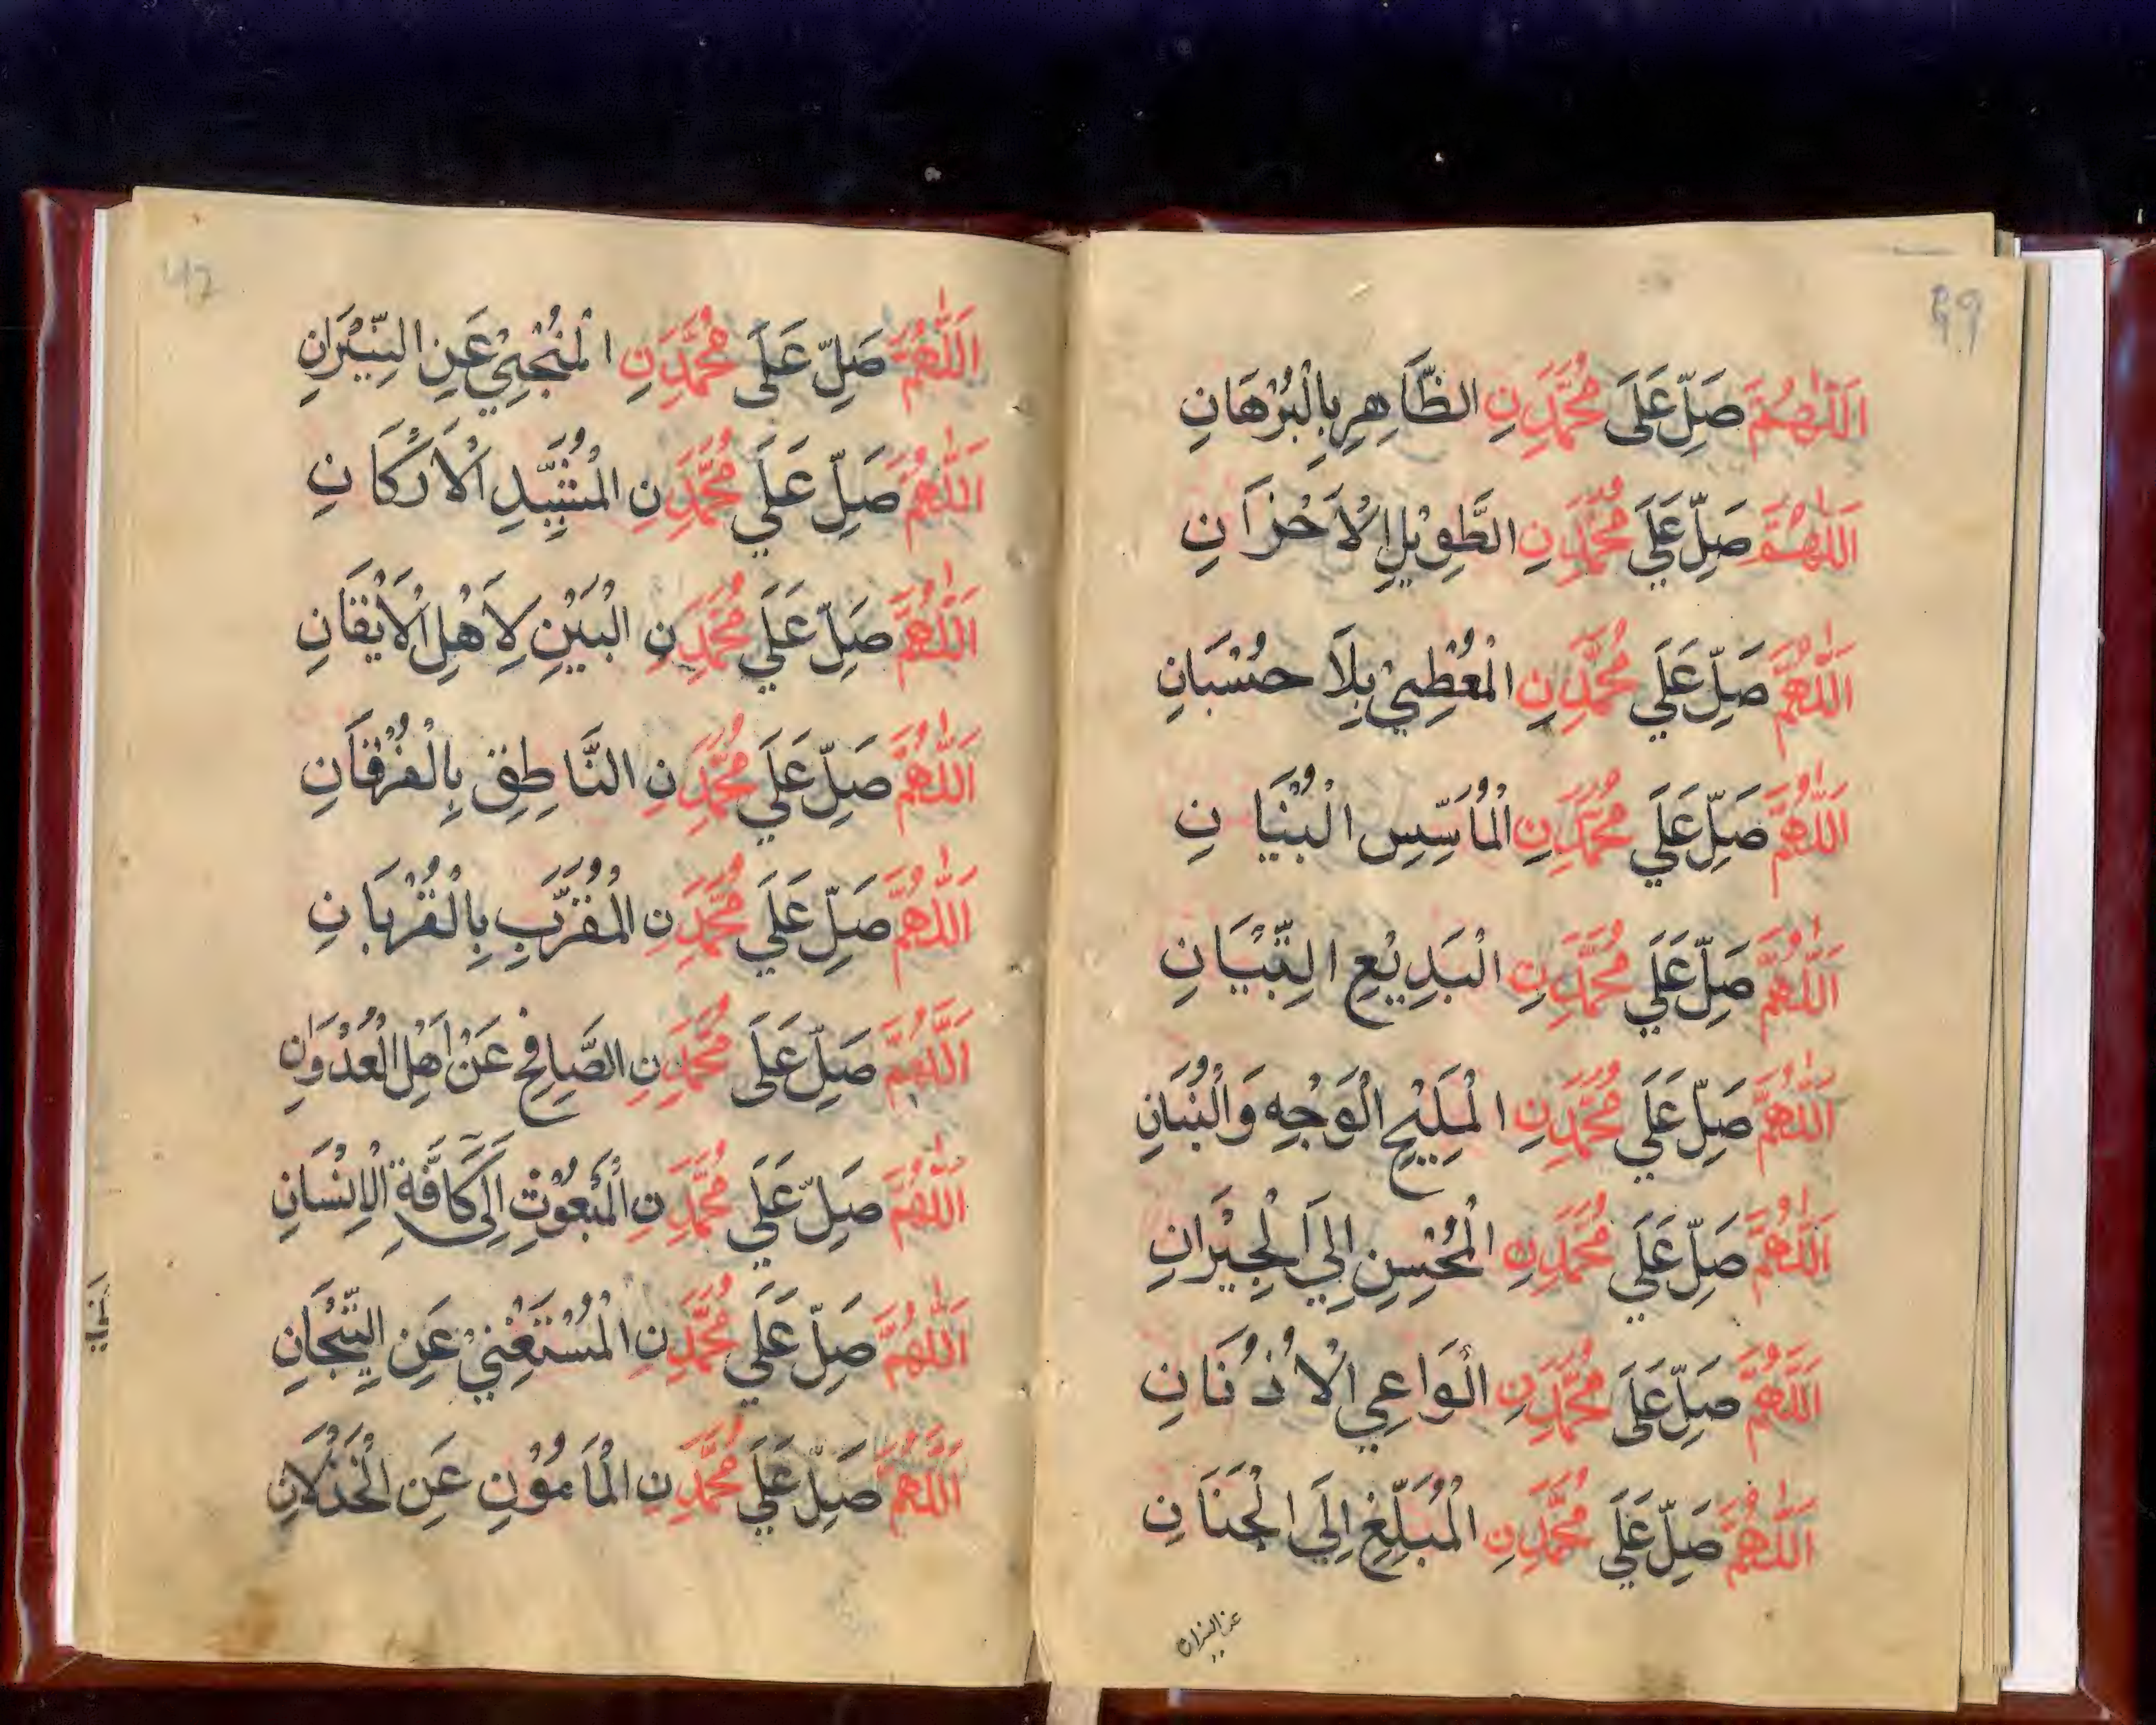 99
اَللّٰهُمَّ صَلِّ عَلَى مُحَمَّدٍ نِ الظَّاهِرِ بِالْبُرْهَانِ
اَللّٰهُمَّ صَلِّ عَلَي مُحَمَّدٍ نِ الطَّوِيْلِ الْاَحْزَانِ
اَللّٰهُمَّ صَلِّ عَلَي مُحَمَّدٍ نِ الْمُعْطِيْ بِلَا حُسْبَانِ
اَللّٰهُمَّ صَلِّ عَلَي مُحَمَّدٍ نِ الْمُاَسِّسِ الْبُنْيَانِ
اَللّٰهُمَّ صَلِّ عَلَي مُحَمَّدٍ نِ الْبَدِيْعِ التِّبْيَانِ
اَللّٰهُمَّ صَلِّ عَلَي مُحَمَّدٍ نِ الْمَلِيْحِ الْوَجْهِ وَالْبُنْيَانِ
اَللّٰهُمَّ صَلِّ عَلَي مُحَمَّدٍ نِ الْمُحْسِنِ اِلَي الْجِيْرَانِ
اَللّٰهُمَّ صَلِّ عَلَى مُحَمَّدٍ نِ الْوَاعِي الْاُذْنَانِ
اَللّٰهُمَّ صَلِّ عَلَي مُحَمَّدٍ نِ الْمُبَلِّغِ اِلَي الْجَنَانِ
عن النيران
اَللّٰهُمَّ صَلِّ عَلَى مُحَمَّدٍ نِ الْمُنْجِيْ عَنِ النِّيْرَانِ
اَللّٰهُمَّ صَلِّ عَلَي مُحَمَّدٍ نِ الْمُشَيِّدِ الْاَرْكَانِ
اَللّٰهُمَّ صَلِّ عَلَي مُحَمَّدٍ نِ الْبَيِّنِ لِاَهْلِ الْاَيْقَانِ
اَللّٰهُمَّ صَلِّ عَلَي مُحَمَّدٍ نِ النَّاطِقِ بِالْفُرْقَانِ
اَللّٰهُمَّ صَلِّ عَلَي مُحَمَّدٍ نِ الْمُقَرَّبِ بِالْقُرْبَانِ
اَللّٰهُمَّ صَلِّ عَلَى مُحَمَّدٍ نِ الصَّافِحِ عَنْ اَهْلِ الْعُدْوَانِ
اَللّٰهُمَّ صَلِّ عَلَي مُحَمَّدٍ نِ الْمَبْعُوْثِ اِلَى كَافَّةِ الْاِنْسَانِ
اَللّٰهُمَّ صَلِّ عَلَي مُحَمَّدٍ نِ الْمُسْتَغْنِيْ عَنِ التِّيْجَانِ
اَللّٰهُمَّ صَلِّ عَلَي مُحَمَّدٍ نِ الْمَاْمُوْنِ عَنِ الْخَذْلَانِ